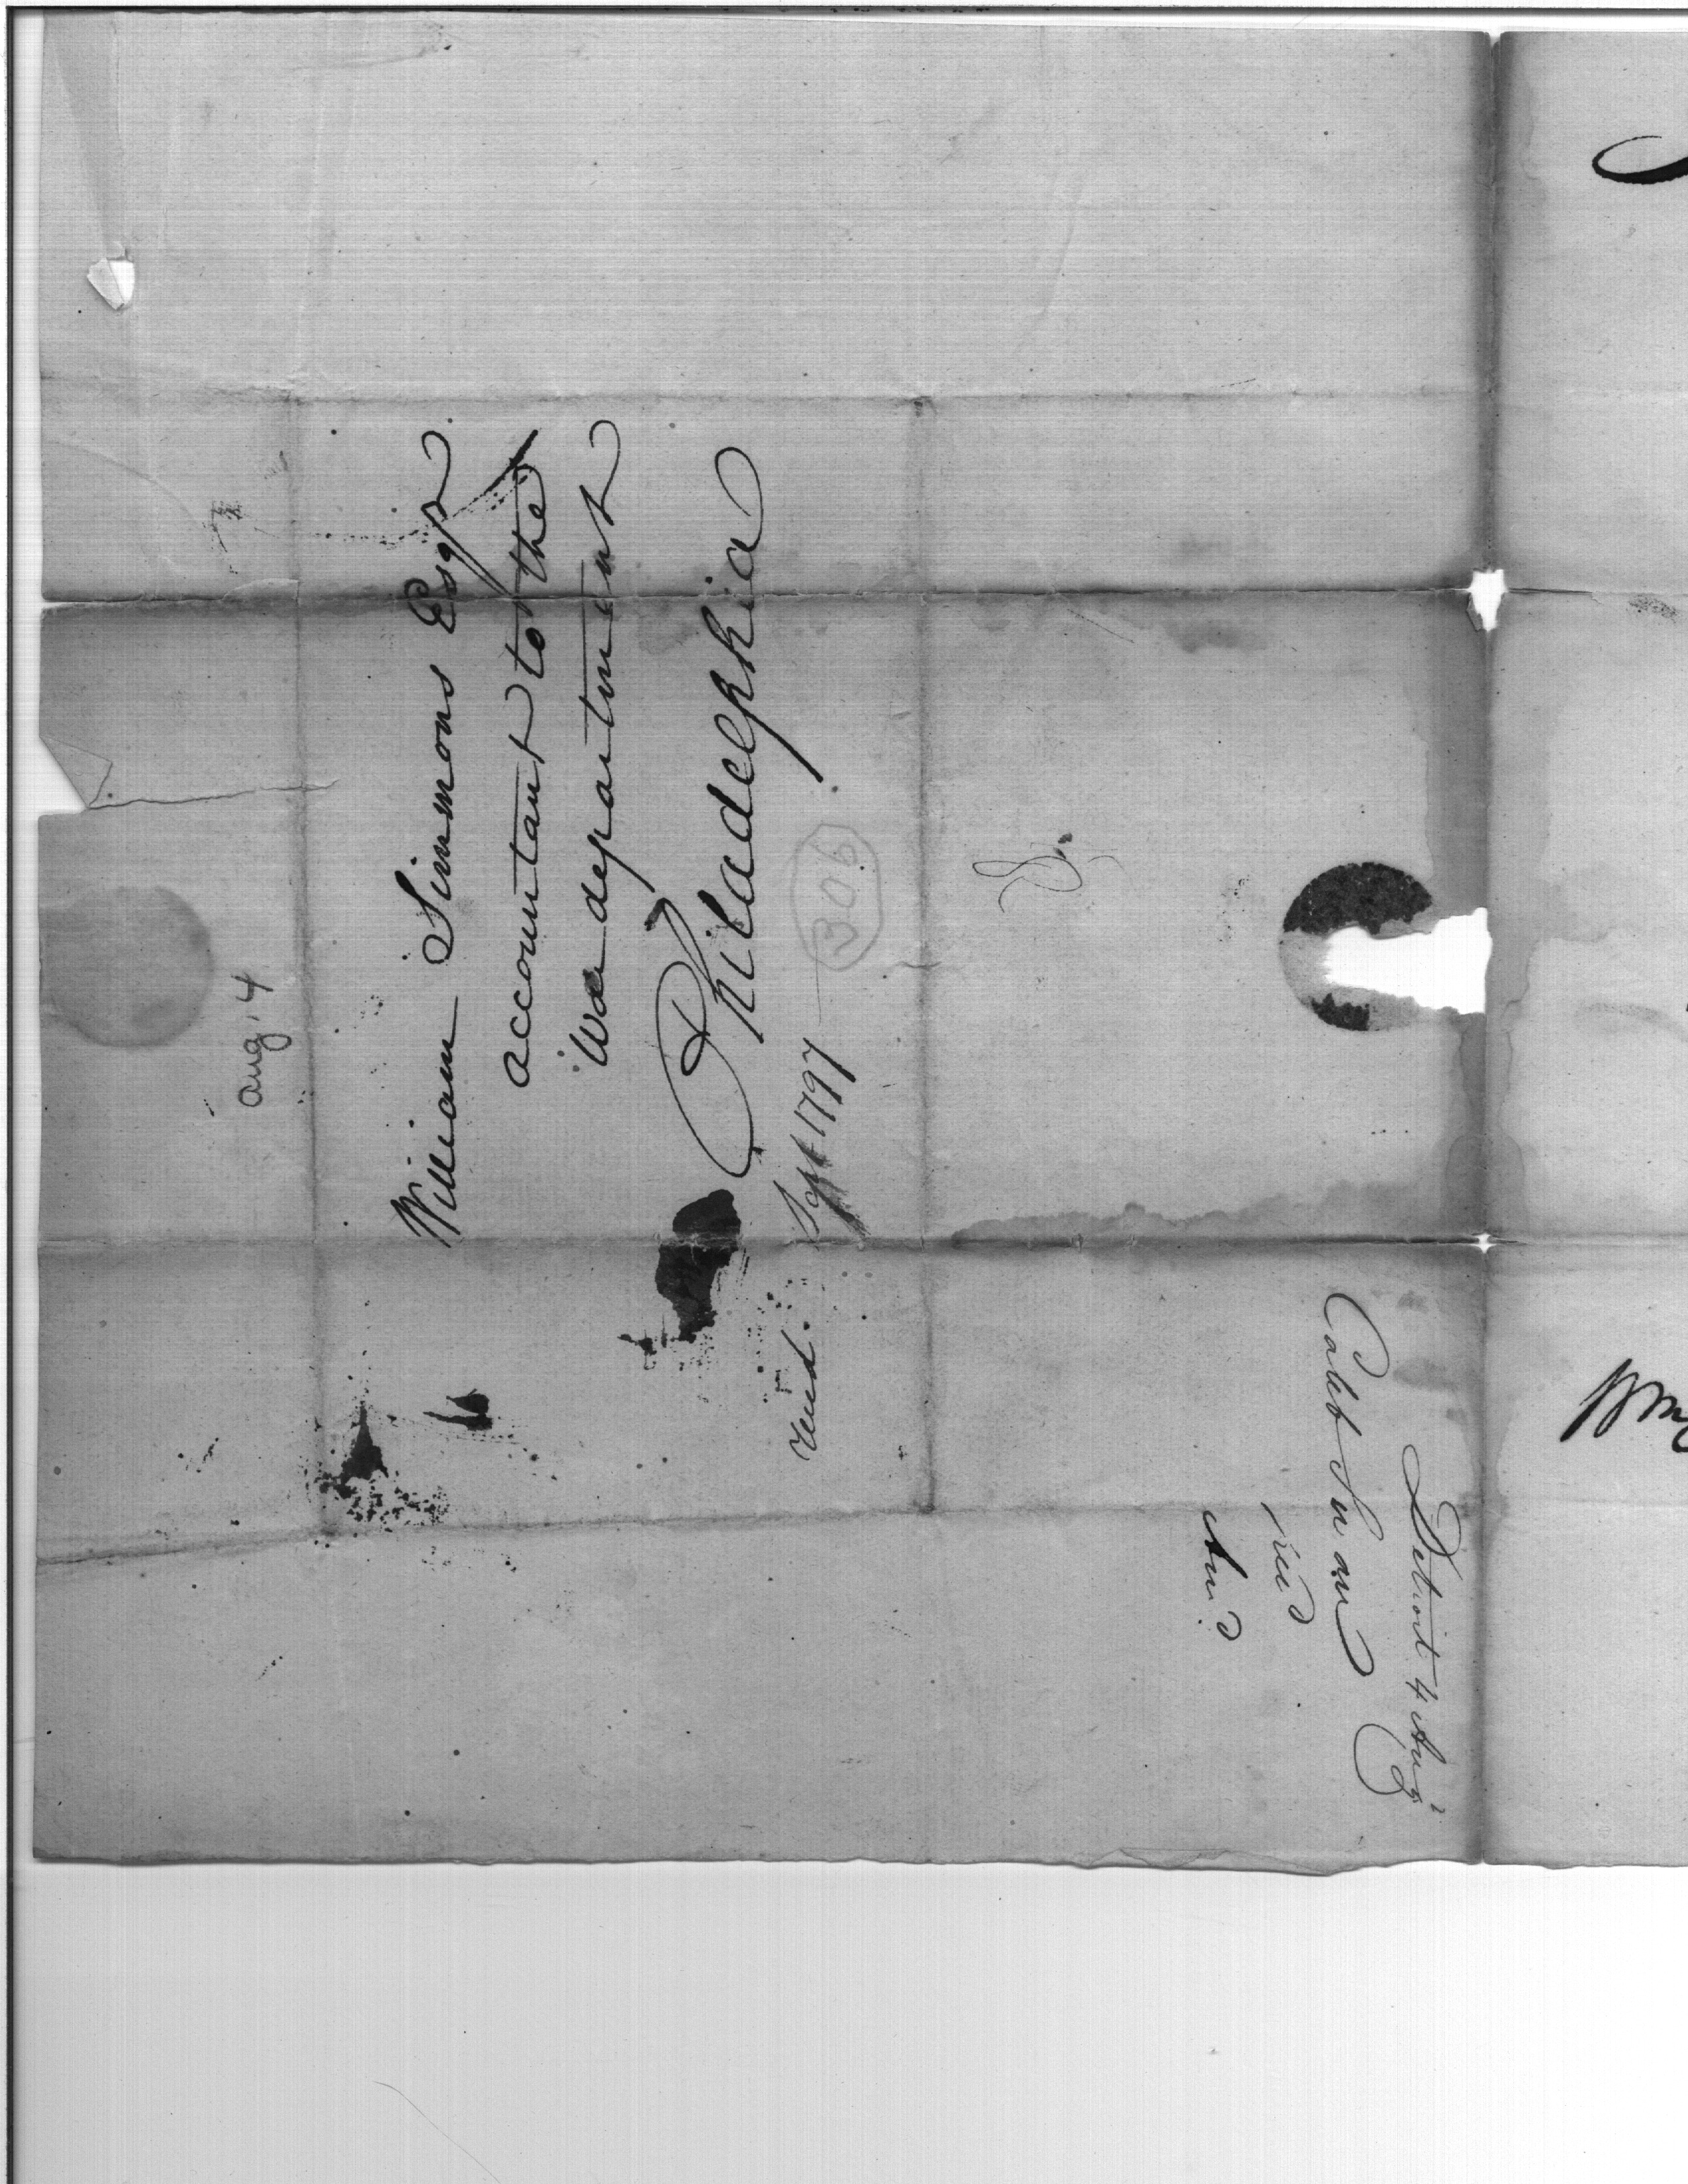 aug. 4
William Simmons Esqr.
accountant to the
War department
Philadelphia
306
recd. Sept 1797
Detroit 4 Augt
Caleb Swan
recd
Ansd
Wm